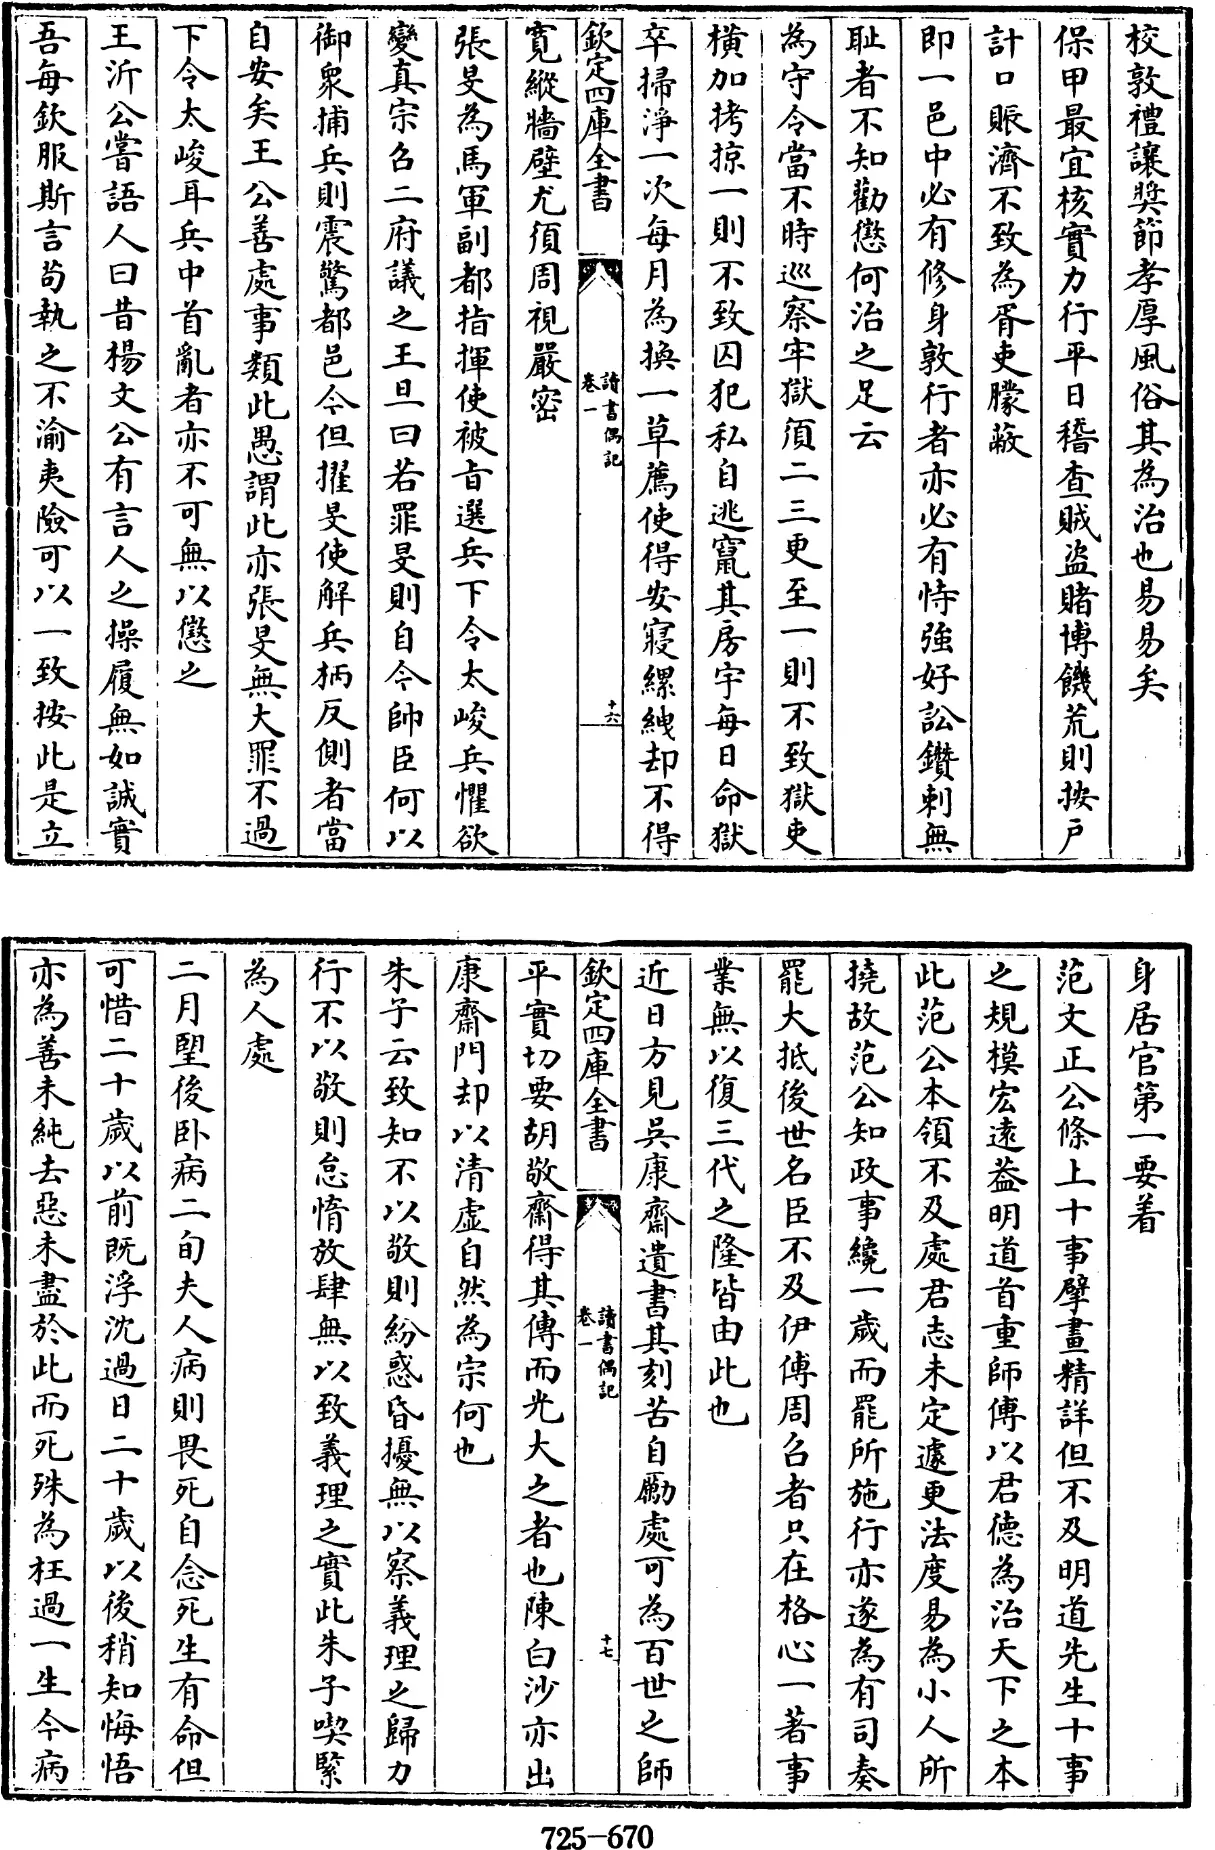 校敦禮讓奬節孝厚風俗其為治也易易矣
保甲最宜核實力行平日稽查賊盗賭博饑荒則按户
計口賑濟不致為胥吏朦蔽
即一邑中必有修身敦行者亦必有恃強好訟鑽刺無
耻者不知勸懲何治之足云
為守令當不時巡察牢獄須二三更至一則不致獄吏
横加拷掠一則不致囚犯私自逃竄其房宇每日命獄
卒掃淨一次每月為換一草薦使得安寢縲絏却不得
欽定四庫全書
讀書偶記
卷一
十六
寛縱牆壁尤須周視嚴密
張旻為馬軍副都指揮使被旨選兵下令太峻兵懼欲
變真宗召二府議之王旦曰若罪旻則自今帥臣何以
御衆捕兵則震驚都邑今但擢旻使解兵柄反側者當
自安矣王公善處事類此愚謂此亦張旻無大罪不過
下令太峻耳兵中首亂者亦不可無以懲之
王沂公嘗語人曰昔楊文公有言人之操履無如誠實
吾每欽服斯言茍執之不渝夷險可以一致按此是立
身居官第一要着
范文正公條上十事擘畫精詳但不及明道先生十事
之規模宏遠葢明道首重師傅以君德為治天下之本
此范公本領不及處君志未定遽更法度易為小人所
撓故范公知政事纔一歲而罷所施行亦遂為有司奏
罷大抵後世名臣不及伊傅周召者只在格心一著事
業無以復三代之隆皆由此也
近日方見吳康齋遺書其刻苦自勵處可為百世之師
欽定四庫全書
讀書偶記
卷一
十七
平實切要胡敬齋得其傳而光大之者也陳白沙亦出
康齋門却以清虚自然為宗何也
朱子云致知不以敬則紛惑昏擾無以察義理之歸力
行不以敬則怠惰放肆無以致義理之實此朱子喫緊
為人處
二月朢後卧病二旬夫人病則畏死自念死生有命但
可惜二十歲以前既浮沈過日二十歲以後稍知悔悟
亦為善未純去惡未盡於此而死殊為枉過一生今病
725-670